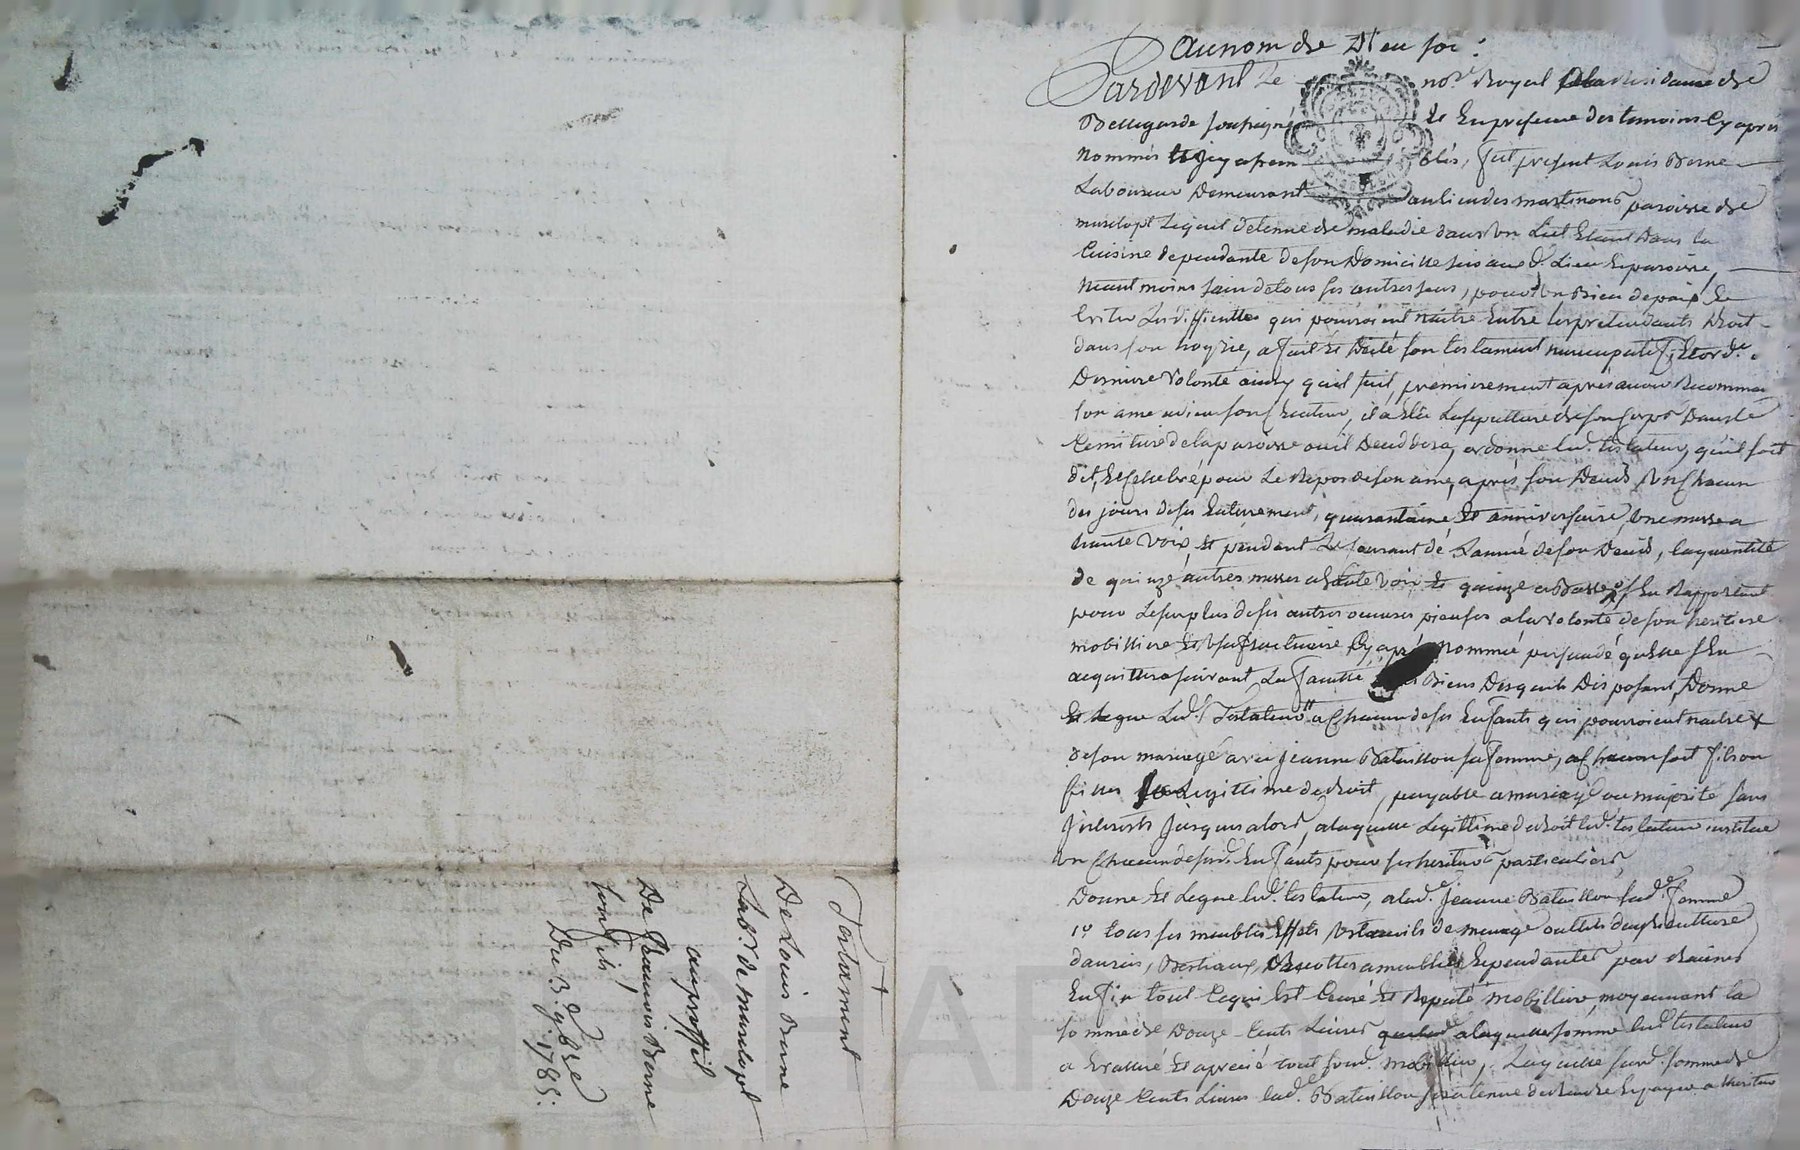 au nom de Dieu soi :
Pardevant Le nore. Royal a la Residance de
Bellegarde soussigné Et En presence des temoins Cy après
Nommés fut present Louis Berne
Laboureur Demeurant au lieu des martinons paroisse de
Lequel detenue de maladie dans un Lict Etant Dans la
Cuisine dependante de son Domicille scis aud. Lieu Et paroisse,
neantmoins sain de tous ses autres sens, pour un Bien de paix Et
Eviter Les difficultes qui pourroient naitre Entre les pretendants Droit
dans son hoyrie, a fait Et Dicté son testament nuncupatif Et ord.re
Derniere Volonté ainsy quil suit, premierement après avoir Recommandé
son ame a dieu son Createur, il a Elu La sepulture de son Corps Dans Le
Cemitiere de la paroisse ou il Decedbera, ordonne led. testateur, quil soit
dit, Et Celebré pour Le Repos de son ame, après son Deceds, Un Chacun
des jours de ses Enterrement, quarantaine Et anniversaire, une messe a
haute Voix, Et pendant Le Courant de Lannée de son Deceds, la quantité
de quinze autres messes a haute voix Et quinze a Basse, s'En Rapportant
pour Le surplus de ses autres oeuvres pieuses a la volonté de son heritiere
mobilliere Et Usufructuaire Cy après Nommée persuadé quelle s'En
acquittera suivant La faculté Biens Desquels Disposant, Donne
Et Legue Led. Testateur a Chacun de ses Enfants qui pourroient naitre
de son mariage avec Jeanne Bataillon sa femme, a Chacun soit fils ou
filles Legittime de droit, payable a mariage ou majorité sans
Interests Jusques alors, a laquelle Legittime de droit led. testateur institue
un Chacun de sesd. Enfants pour ses heritiers particuliers,
Donne Et Legue led. testateur, a lad. Jeanne Bataillon sad. femme
1o. tous ses meubles Effets Ustancils de menage outils dagriculture
danrées, Bestiaux, Recoltes ameublies Et pendantes par Racines
Enfin tout Ce qui Est Censé Et Reputé mobilliere moyennant la
somme de Douze Cents Livres a laquelle somme led. testateur
a Evalué Et aprecié tout sond. mobillier, Laquelle susd. somme de
Douze Cents Livres lad. Bataillon sera tenue de Rendre Et payer a lheritier
Testament
De Louis Berne
Lab.r de
au proffit
De francois Berne
son fils,
Du 3.e 9bre
1785: